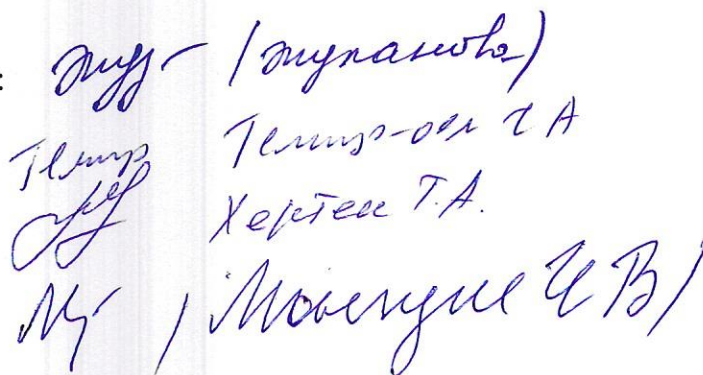 : (Жуланова)
Темир Темир-оол Ч А
Хертек Т.А.
/ Монгуш Ч В /